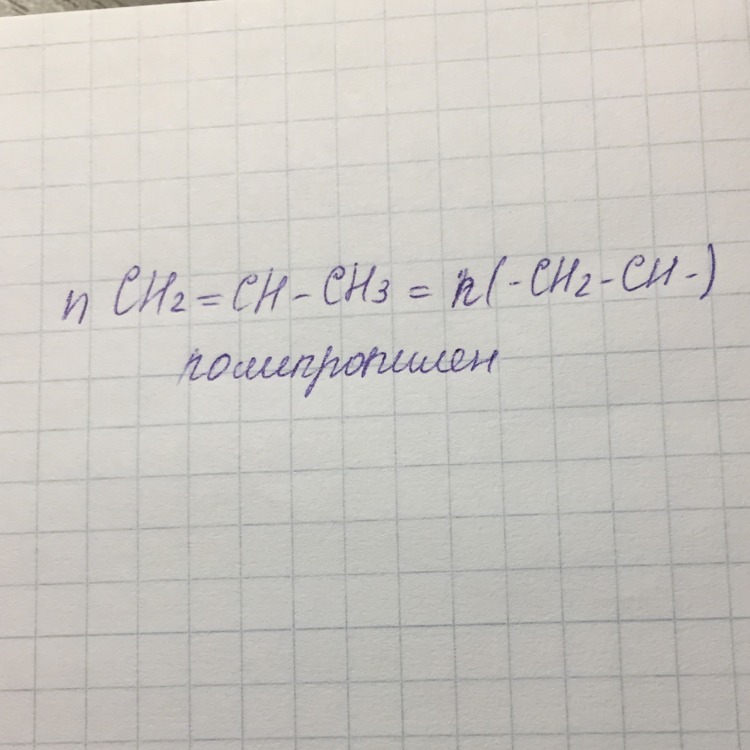 n CH₂=CH-CH₃ = n(-CH₂-CH-)
полипропилен